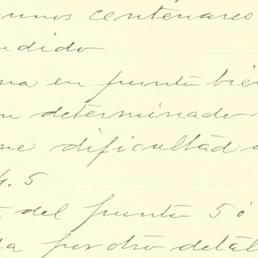 gunos centenares
ndido
na en punto bié
n determinado
ne dificultad
4.5
del punto 5 ó
a por otro detal